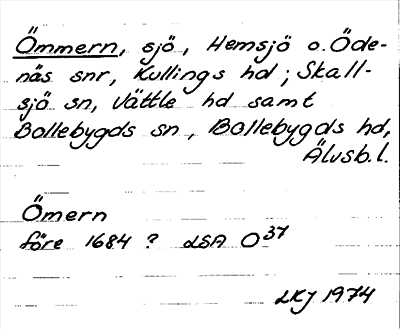 Ömmern, sjö, Hemsjö o. Öde-
näs snr, Kullings hd; Skall-
sjö sn, Vättle hd samt
Bollebygds sn, Bollebygds hd,
Älvsb. l.
Ömern
före 1684 ? LSA O37
LKJ 1974